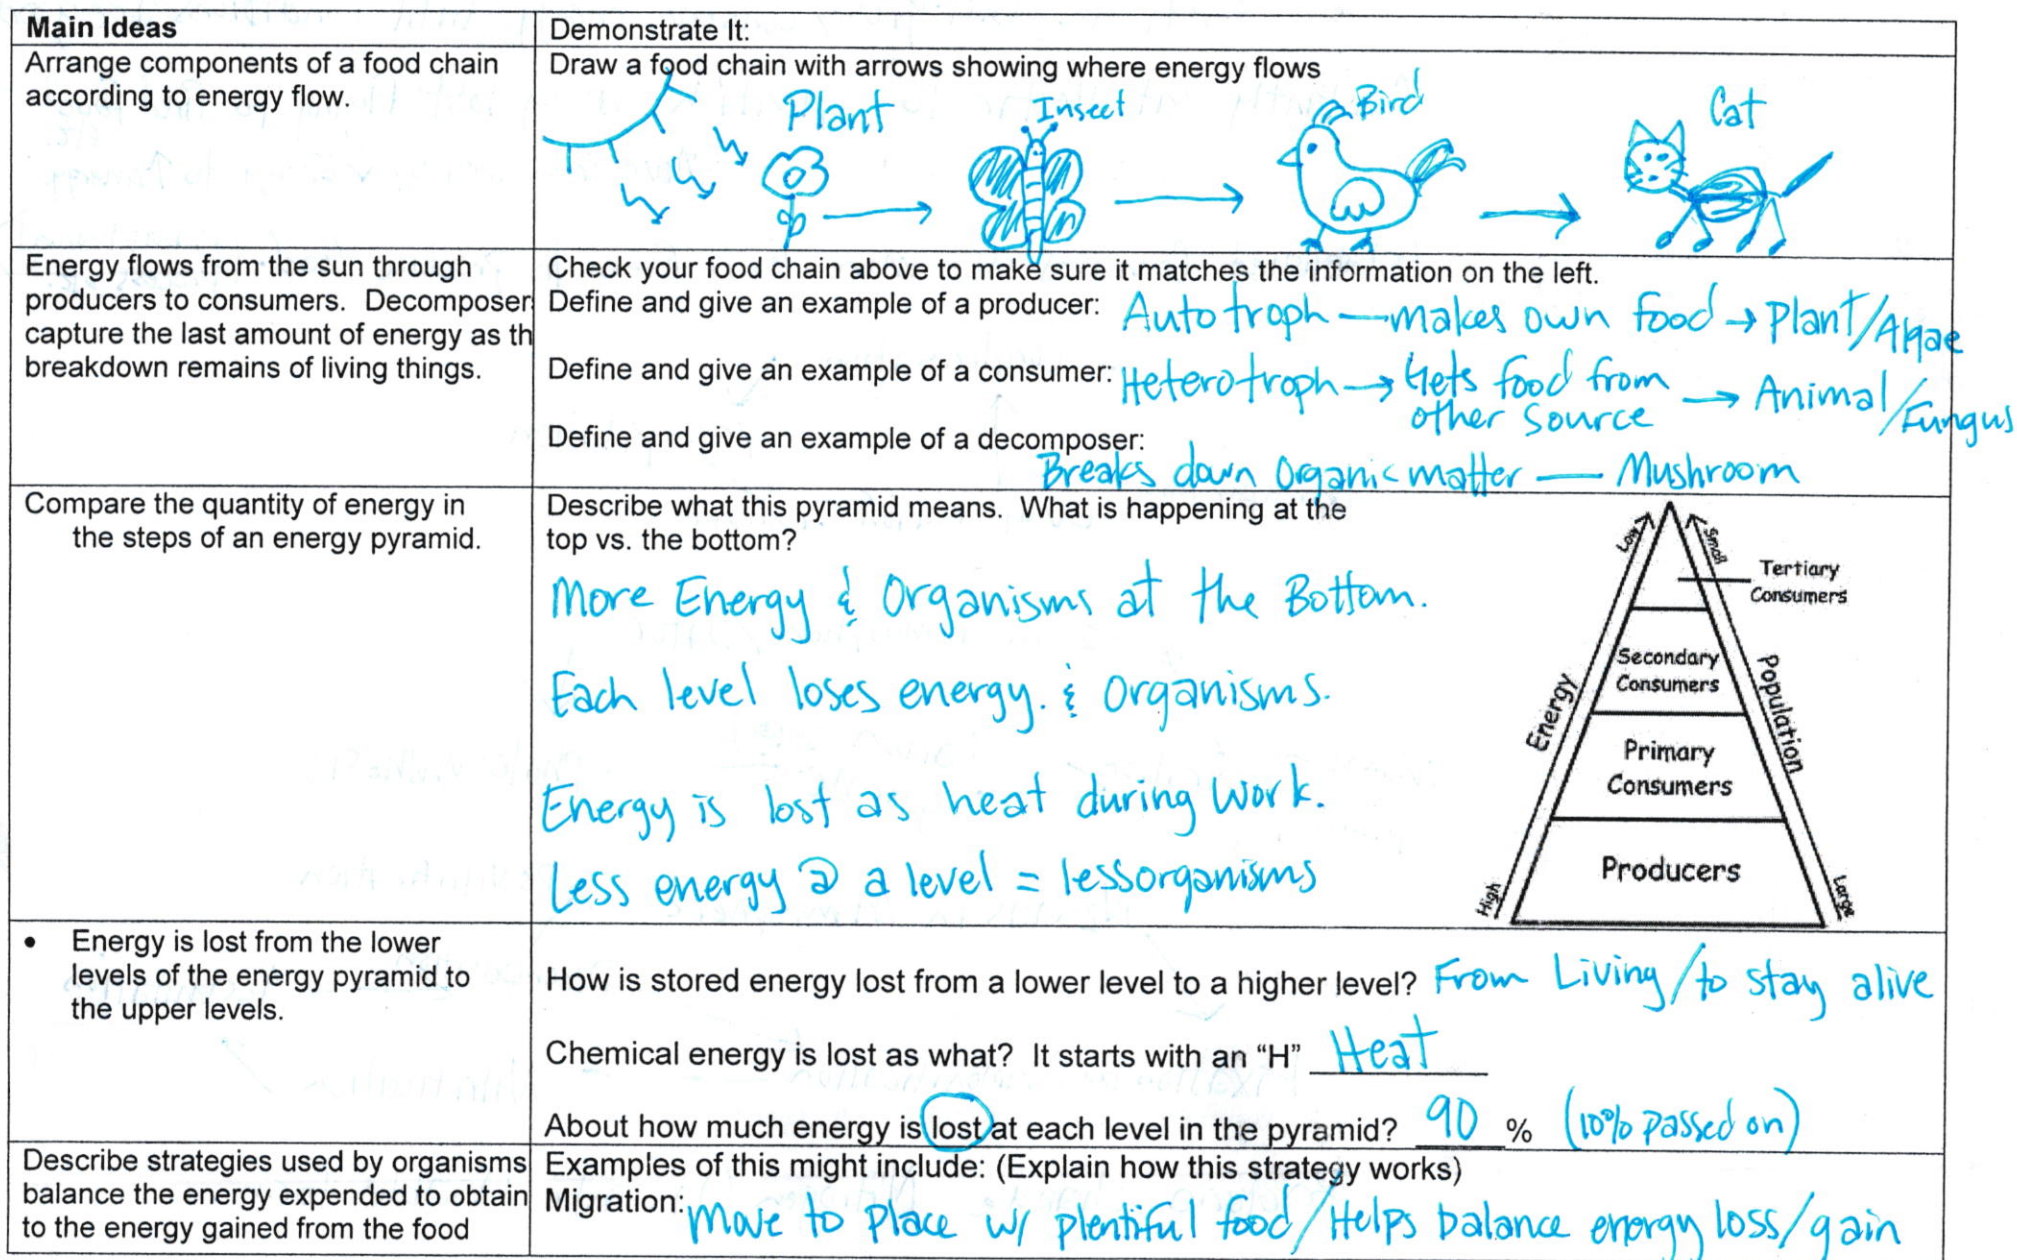 Main Ideas
Demonstrate It:
Arrange components of a food chain
according to energy flow.
Draw a food chain with arrows showing where energy flows
Plant
Insect
Bird
Cat
Energy flows from the sun through
producers to consumers. Decomposer
capture the last amount of energy as th
breakdown remains of living things.
Check your food chain above to make sure it matches the information on the left.
Define and give an example of a producer: Autotroph — makes own food → Plant/Algae
Define and give an example of a consumer: Heterotroph → Gets food from
other source → Animal/Fungus
Define and give an example of a decomposer:
Breaks down Organic matter — Mushroom
Compare the quantity of energy in
the steps of an energy pyramid.
Describe what this pyramid means. What is happening at the
top vs. the bottom?
More Energy & Organisms at the Bottom.
Each level loses energy. & organisms.
Energy is lost as heat during work.
Less energy @ a level = less organisms
Low
Small
Tertiary
Consumers
Secondary
Consumers
Energy
Population
Primary
Consumers
Producers
High
Large
• Energy is lost from the lower
levels of the energy pyramid to
the upper levels.
How is stored energy lost from a lower level to a higher level? From Living/to stay alive
Chemical energy is lost as what? It starts with an “H” Heat
About how much energy is lost at each level in the pyramid? 90 % (10% passed on)
Describe strategies used by organisms
balance the energy expended to obtain
to the energy gained from the food
Examples of this might include: (Explain how this strategy works)
Migration: Move to place w/ plentiful food/Helps balance energy loss/gain